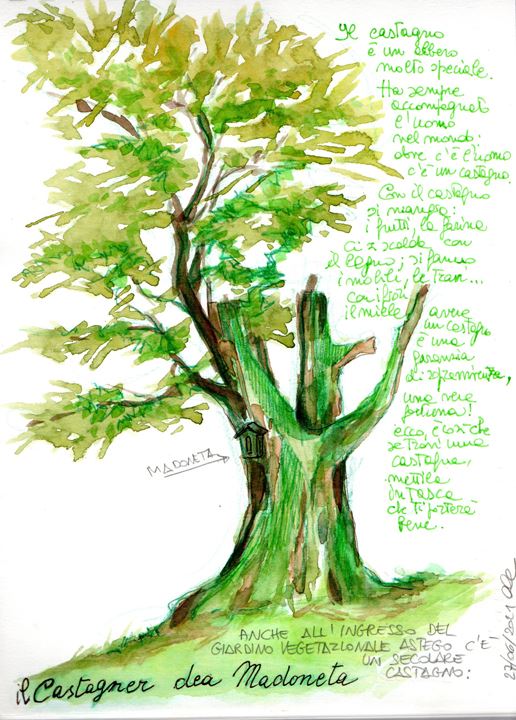 Il castagno
è un albero
molto speciale.
Ha sempre
accompagnato
l'uomo
nel mondo:
dove c'è l'uomo
c'è un castagno.
Con il castagno
si mangia:
i frutti, la farina
ci si scalda con
il legno; si fanno
i mobili, le travi...
con i fiori
il miele avere
un castagno
è una
garanzia
di sopravvivenza,
una vera
fortuna!
ecco, è così che
se trovi una
castagna,
mettila
in tasca
che ti porterà
bene.
MADONETA
ANCHE ALL'INGRESSO DEL
GIARDINO VEGETAZIONALE ASTEGO C'E'
UN SECOLARE
CASTAGNO:
il Castagner dea Madoneta